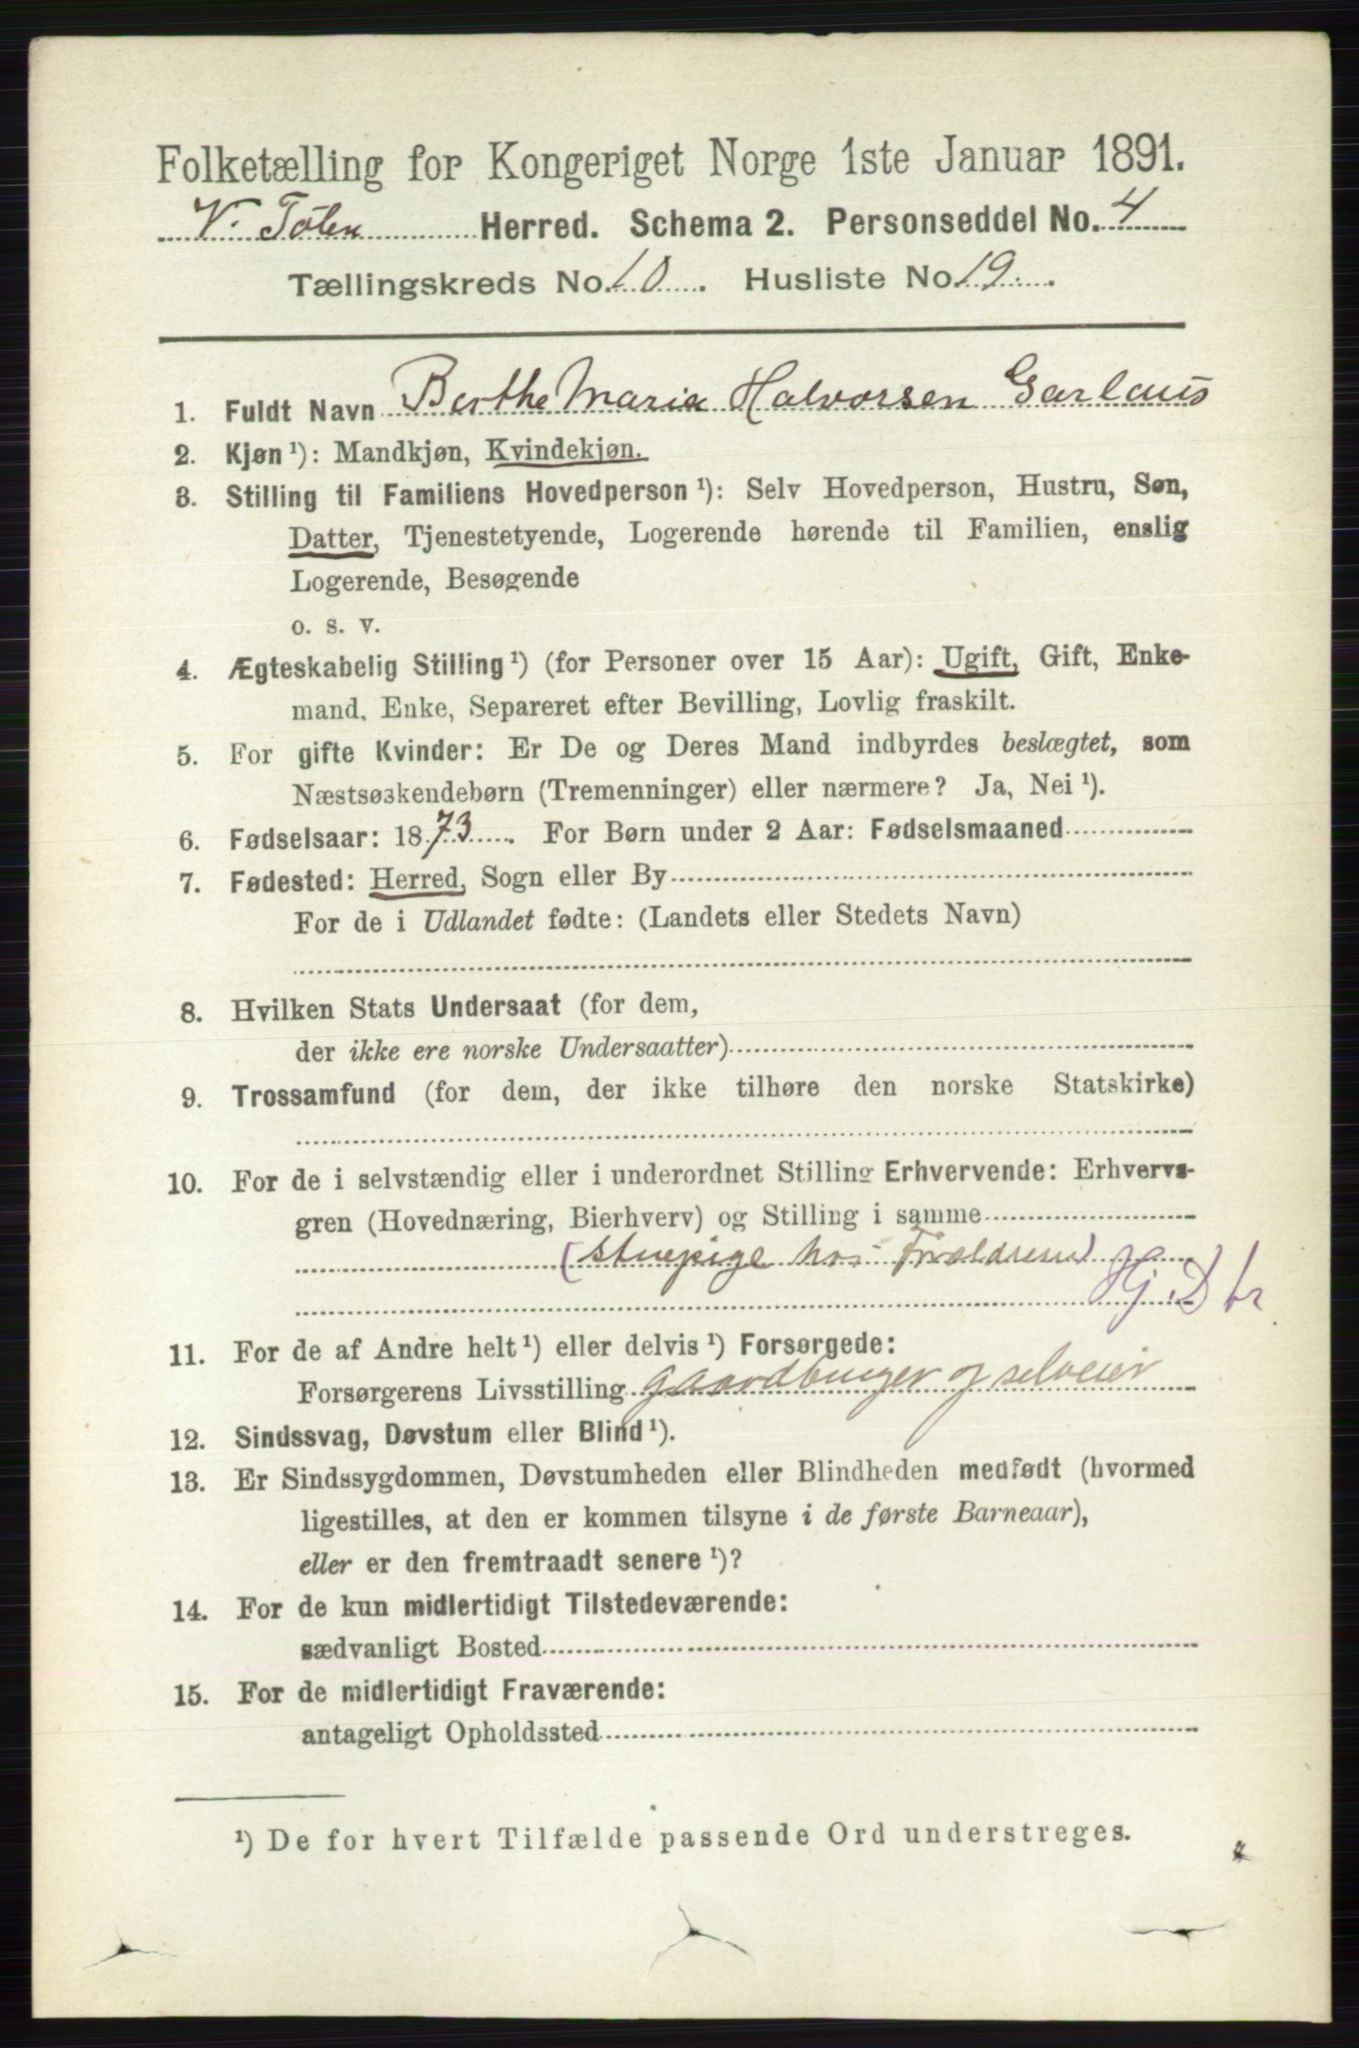 Folketælling for Kongeriget Norge 1ste Januar 1891.
V. Toten Herred. Schema 2. Personseddel No. 4
Tællingskreds No. 10. Husliste No. 19.
1. Fuldt Navn Berthe Maria Halvorsen Garlaus
2. Kjøn ¹): Mandkjøn, Kvindekjøn.
3. Stilling til Familiens Hovedperson ¹): Selv Hovedperson, Hustru, Søn,
Datter, Tjenestetyende, Logerende hørende til Familien, enslig
Logerende, Besøgende
o. s. v.
4. Ægteskabelig Stilling ¹) (for Personer over 15 Aar): Ugift, Gift, Enke-
mand, Enke, Separeret efter Bevilling, Lovlig fraskilt.
5. For gifte Kvinder: Er De og Deres Mand indbyrdes beslægtet, som
Næstsøskendebørn (Tremenninger) eller nærmere? Ja, Nei ¹).
6. Fødselsaar: 1873. For Børn under 2 Aar: Fødselsmaaned
7. Fødested: Herred, Sogn eller By
For de i Udlandet fødte: (Landets eller Stedets Navn)
8. Hvilken Stats Undersaat (for dem,
der ikke ere norske Undersaatter)
9. Trossamfund (for dem, der ikke tilhøre den norske Statskirke)
10. For de i selvstændig eller i underordnet Stilling Erhvervende: Erhvervs-
gren (Hovednæring, Bierhverv) og Stilling i samme
(Stuepige hos Forældrene)
Hj. D
11. For de af Andre helt ¹) eller delvis ¹) Forsørgede:
Forsørgerens Livsstilling gaardbruger og selveier
12. Sindssvag, Døvstum eller Blind ¹).
13. Er Sindssygdommen, Døvstumheden eller Blindheden medfødt (hvormed
ligestilles, at den er kommen tilsyne i de første Barneaar),
eller er den fremtraadt senere ¹)?
14. For de kun midlertidigt Tilstedeværende:
sædvanligt Bosted
15. For de midlertidigt Fraværende:
antageligt Opholdssted
¹) De for hvert Tilfælde passende Ord understreges.